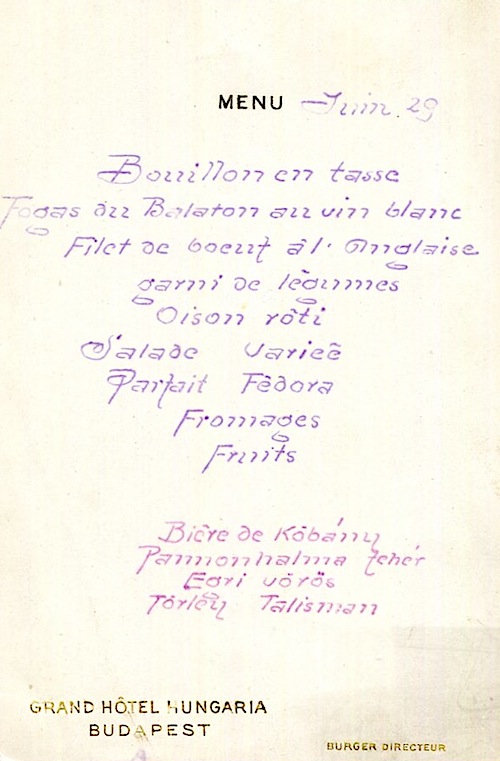 MENU Juin 29
Bouillon en tasse
Fogas du Balaton au vin blanc
Filet de boeuf à l'Anglaise
garni de légumes
Oison rôti
Salade Varieê
Parfait Fêdora
Fromages
Fruits
Bière de Köbány
Pannonhalma fehér
Egri vörös
Törley Talisman
GRAND HÔTEL HUNGARIA
BUDAPEST
BURGER DIRECTEUR